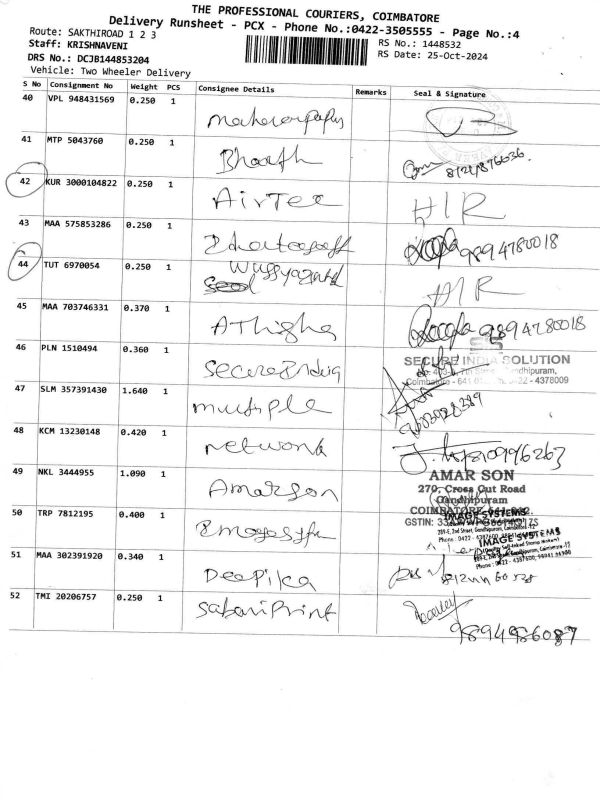 THE PROFESSIONAL COURIERS, COIMBATORE
Delivery Runsheet - PCX - Phone No.:0422-3505555 - Page No.:4
Route: SAKTHIROAD 1 2 3
RS No.: 1448532
Staff: KRISHNAVENI
RS Date: 25-Oct-2024
DRS No.: DCJB144853204
Vehicle: Two Wheeler Delivery
S No Consignment No Weight PCS Consignee Details Remarks Seal & Signature
40 VPL 948431569 0.250 1
41 MTP 5043760 0.250 1 Bharath
42 KUR 3000104822 0.250 1 AirTel HIR
43 MAA 575853286 0.250 1 9894780018
44 TUT 6970054 0.250 1 HIR
45 MAA 703746331 0.370 1 AThigha 9894780018
46 PLN 1510494 0.360 1 Secure India
SECURE INDIA SOLUTION
7th Street, Gandhipuram,
Coimbatore - 641 0 Ph: 0422 - 4378009
47 SLM 357391430 1.640 1 multiple
48 KCM 13230148 0.420 1 network
49 NKL 3444955 1.090 1 Amarson
AMAR SON
270, Cross Cut Road
Gandhipuram
COIMBATORE-641 012.
GSTIN:
50 TRP 7812195 0.400 1
IMAGE SYSTEMS
IMAGE SYSTEMS
51 MAA 302391920 0.340 1 Deepika
52 TMI 20206757 0.250 1 Sabari Print
9894986087